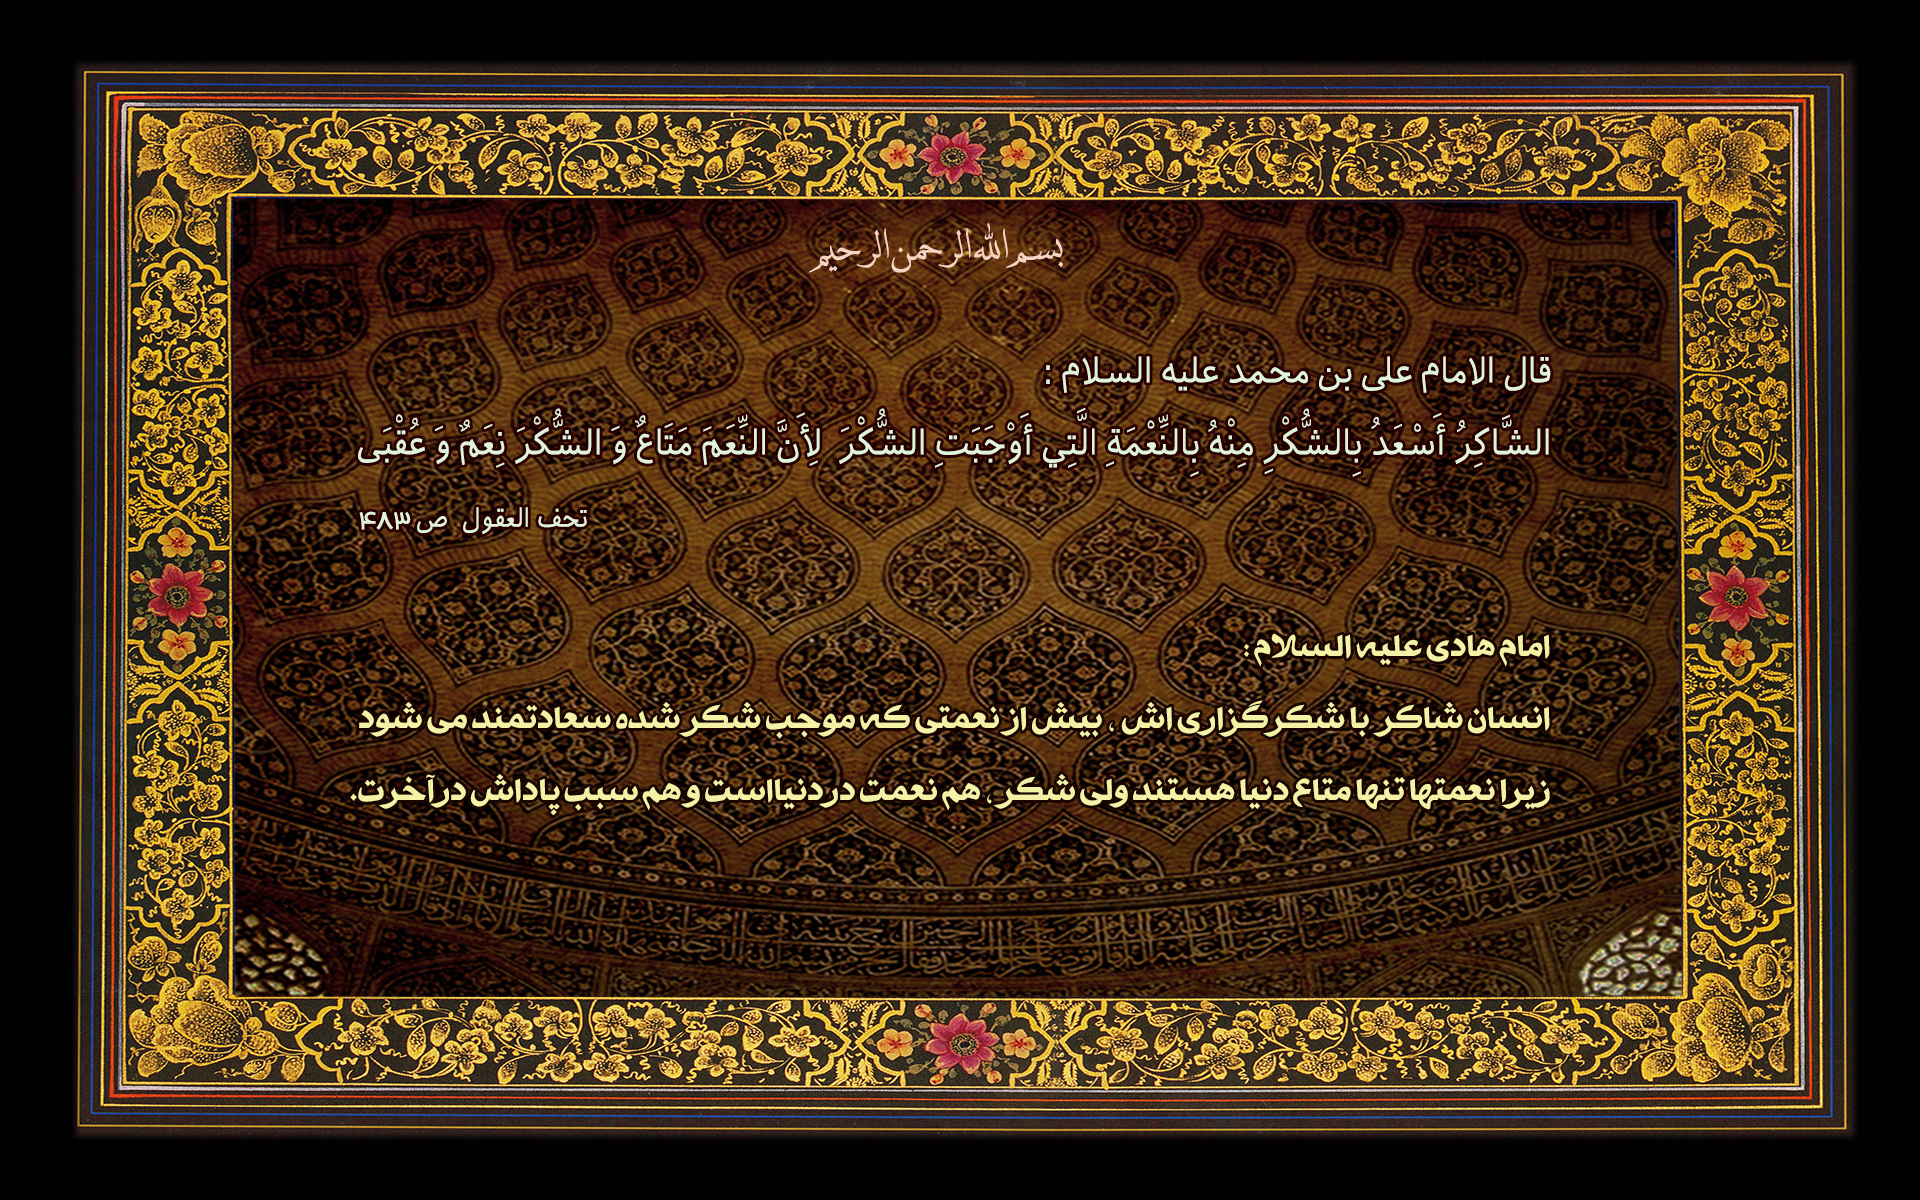 بسم الله الرحمن الرحیم
قال الامام علی بن محمد علیه السلام :
الشَّاكِرُ أَسْعَدُ بِالشُّكْرِ مِنْهُ بِالنِّعْمَةِ الَّتِي أَوْجَبَتِ الشُّكْرَ لِأَنَّ النِّعَمَ مَتَاعٌ وَ الشُّكْرَ نِعَمٌ وَ عُقْبَى
تحف العقول ص ۴۸۳
امام هادی علیه السلام :
انسان شاکر با شکرگزاری اش ، بیش از نعمتی که موجب شکر شده سعادتمند می شود
زیرا نعمتها تنها متاع دنیا هستند ولی شکر ، هم نعمت در دنیااست و هم سبب پاداش درآخرت.